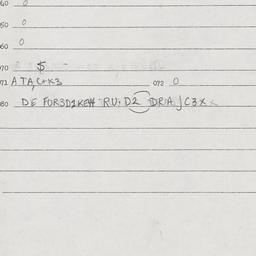 60 0
50 0
60 0
070 $
071 ATA,C+K3 072 0
080 DE FOR3D1KEH RU, D2 DRIA JC3X